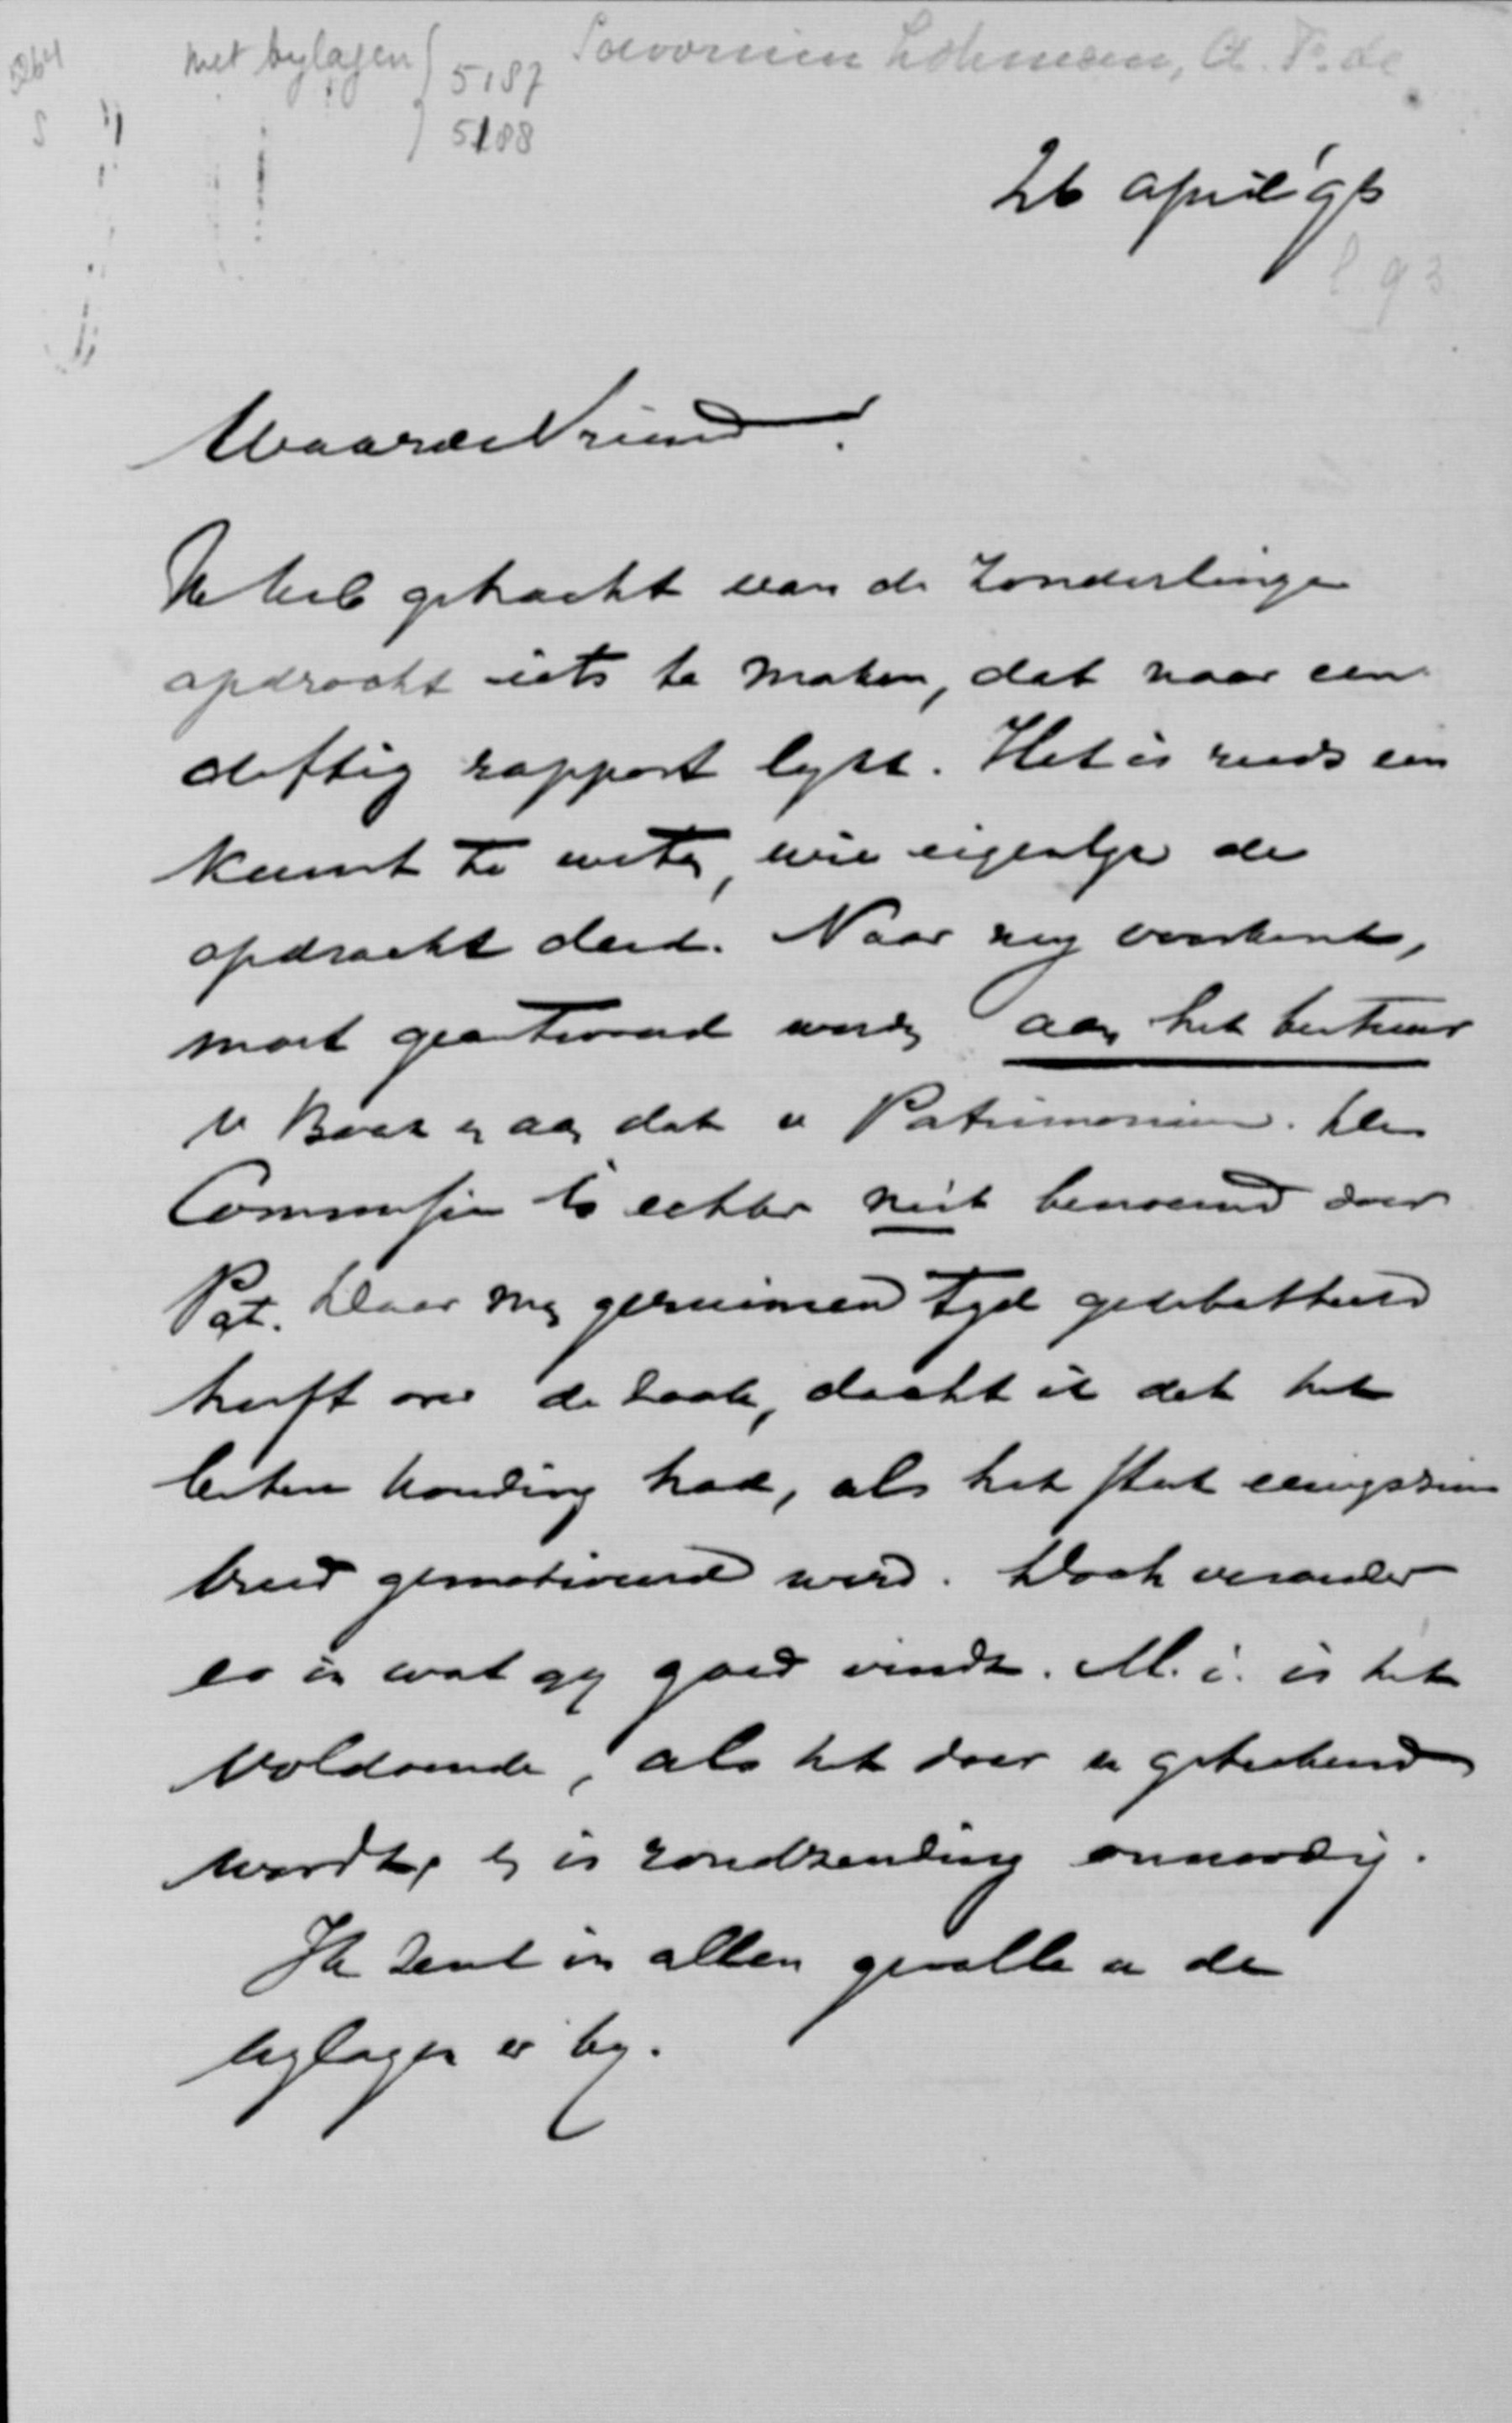 5264
S
met bylagen { 5187
5188
Savornin Lohman, A. F. de
26 april '93
93
Waarde Vriend!
Ik heb getracht van de zonderlinge
opdracht iets te maken, dat naar een
deftig rapport lykt. Het is reeds een
kunst te weten, wie eigenlyk de
opdracht deed. Naar my voorkomt,
moet geantwoord worden aan het bestuur
v Boaz en aan dat v Patrimonium. De
Commissie is echter niet benoemd door
Pat. Daar men geruimen tyd gedebatteerd
heeft over de zaak, dacht ik dat het
beter houding had, als het stuk eenigszins
breed gemotiveerd werd. Doch verander
er in wat gy goed vindt. M. i. is het
voldoende, als het door u geteekend
wordt, en is rondzending onnoodig.
Ik zend in allen gevalle u de
bylagen er by.